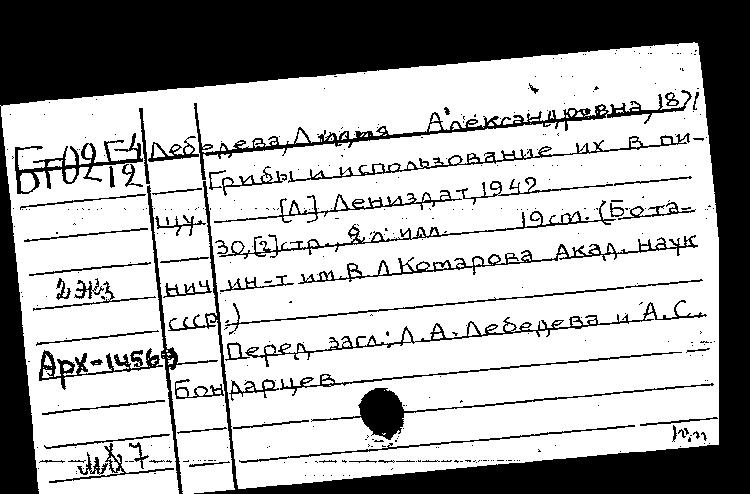 Бт02 Г-4/12 Лебедева, Лидия Александровна, 1871
Грибы и использование их в пи-
щу. [Л.], Лениздат, 1942
30,[2]стр., 2 л. илл. 19см. (Бота-
2 экз нич. ин-т им. В Л Комарова Акад. наук
СССР.)
Арх-14569 Перед загл.: Л.А. Лебедева и А.С.
Бондарцев
7